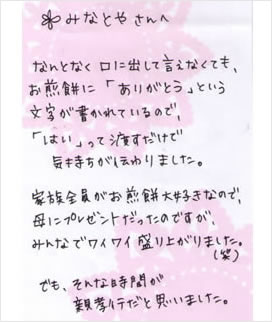 みなとやさんへ
なんとなく口に出して言えなくても、
お煎餅に「ありがとう」という
文字が書かれているので、
「はい」って渡すだけで
気持ちが伝わりました。
家族全員がお煎餅大好きなので、
母にプレゼントだったのですが、
みんなでワイワイ盛り上がりました。
(笑)
でも、そんな時間が
親孝行だと思いました。